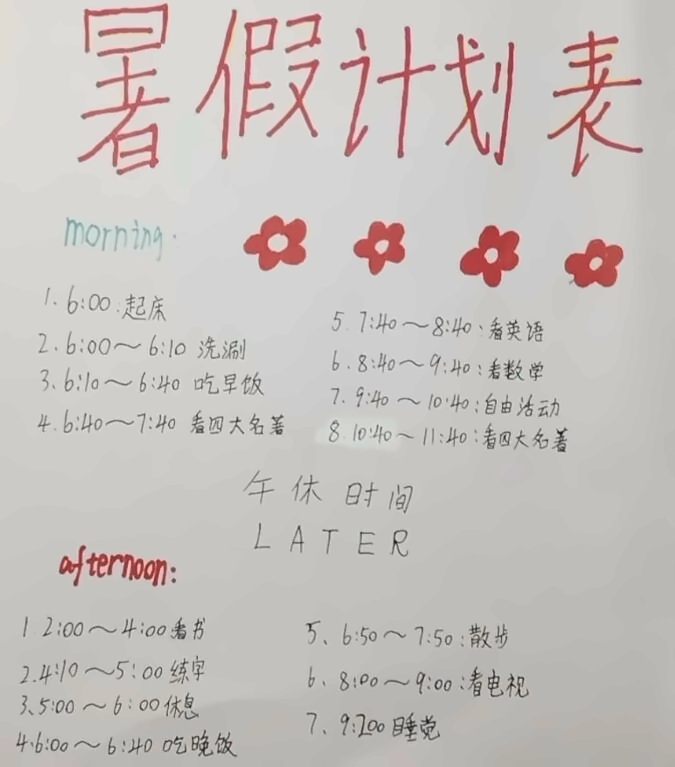 暑假计划表
morning:
1. 6:00:起床
2. 6:00～6:10 洗涮
3. 6:10～6:40 吃早饭
4. 6:40～7:40 看四大名著
5. 7:40～8:40:看英语
6. 8:40～9:40:看数学
7. 9:40～10:40:自由活动
8. 10:40～11:40:看四大名著
午休时间
LATER
afternoon:
1. 2:00～4:00看书
2. 4:10～5:00 练字
3、5:00～6:00休息
4. 6:00～6:40 吃晚饭
5、6:50～7:50:散步
6、8:00～9:00:看电视
7、睡觉